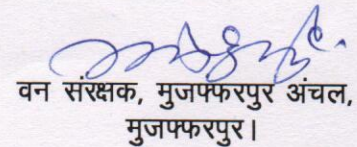 वन संरक्षक, मुजफ्फरपुर अंचल,
मुजफ्फरपुर।